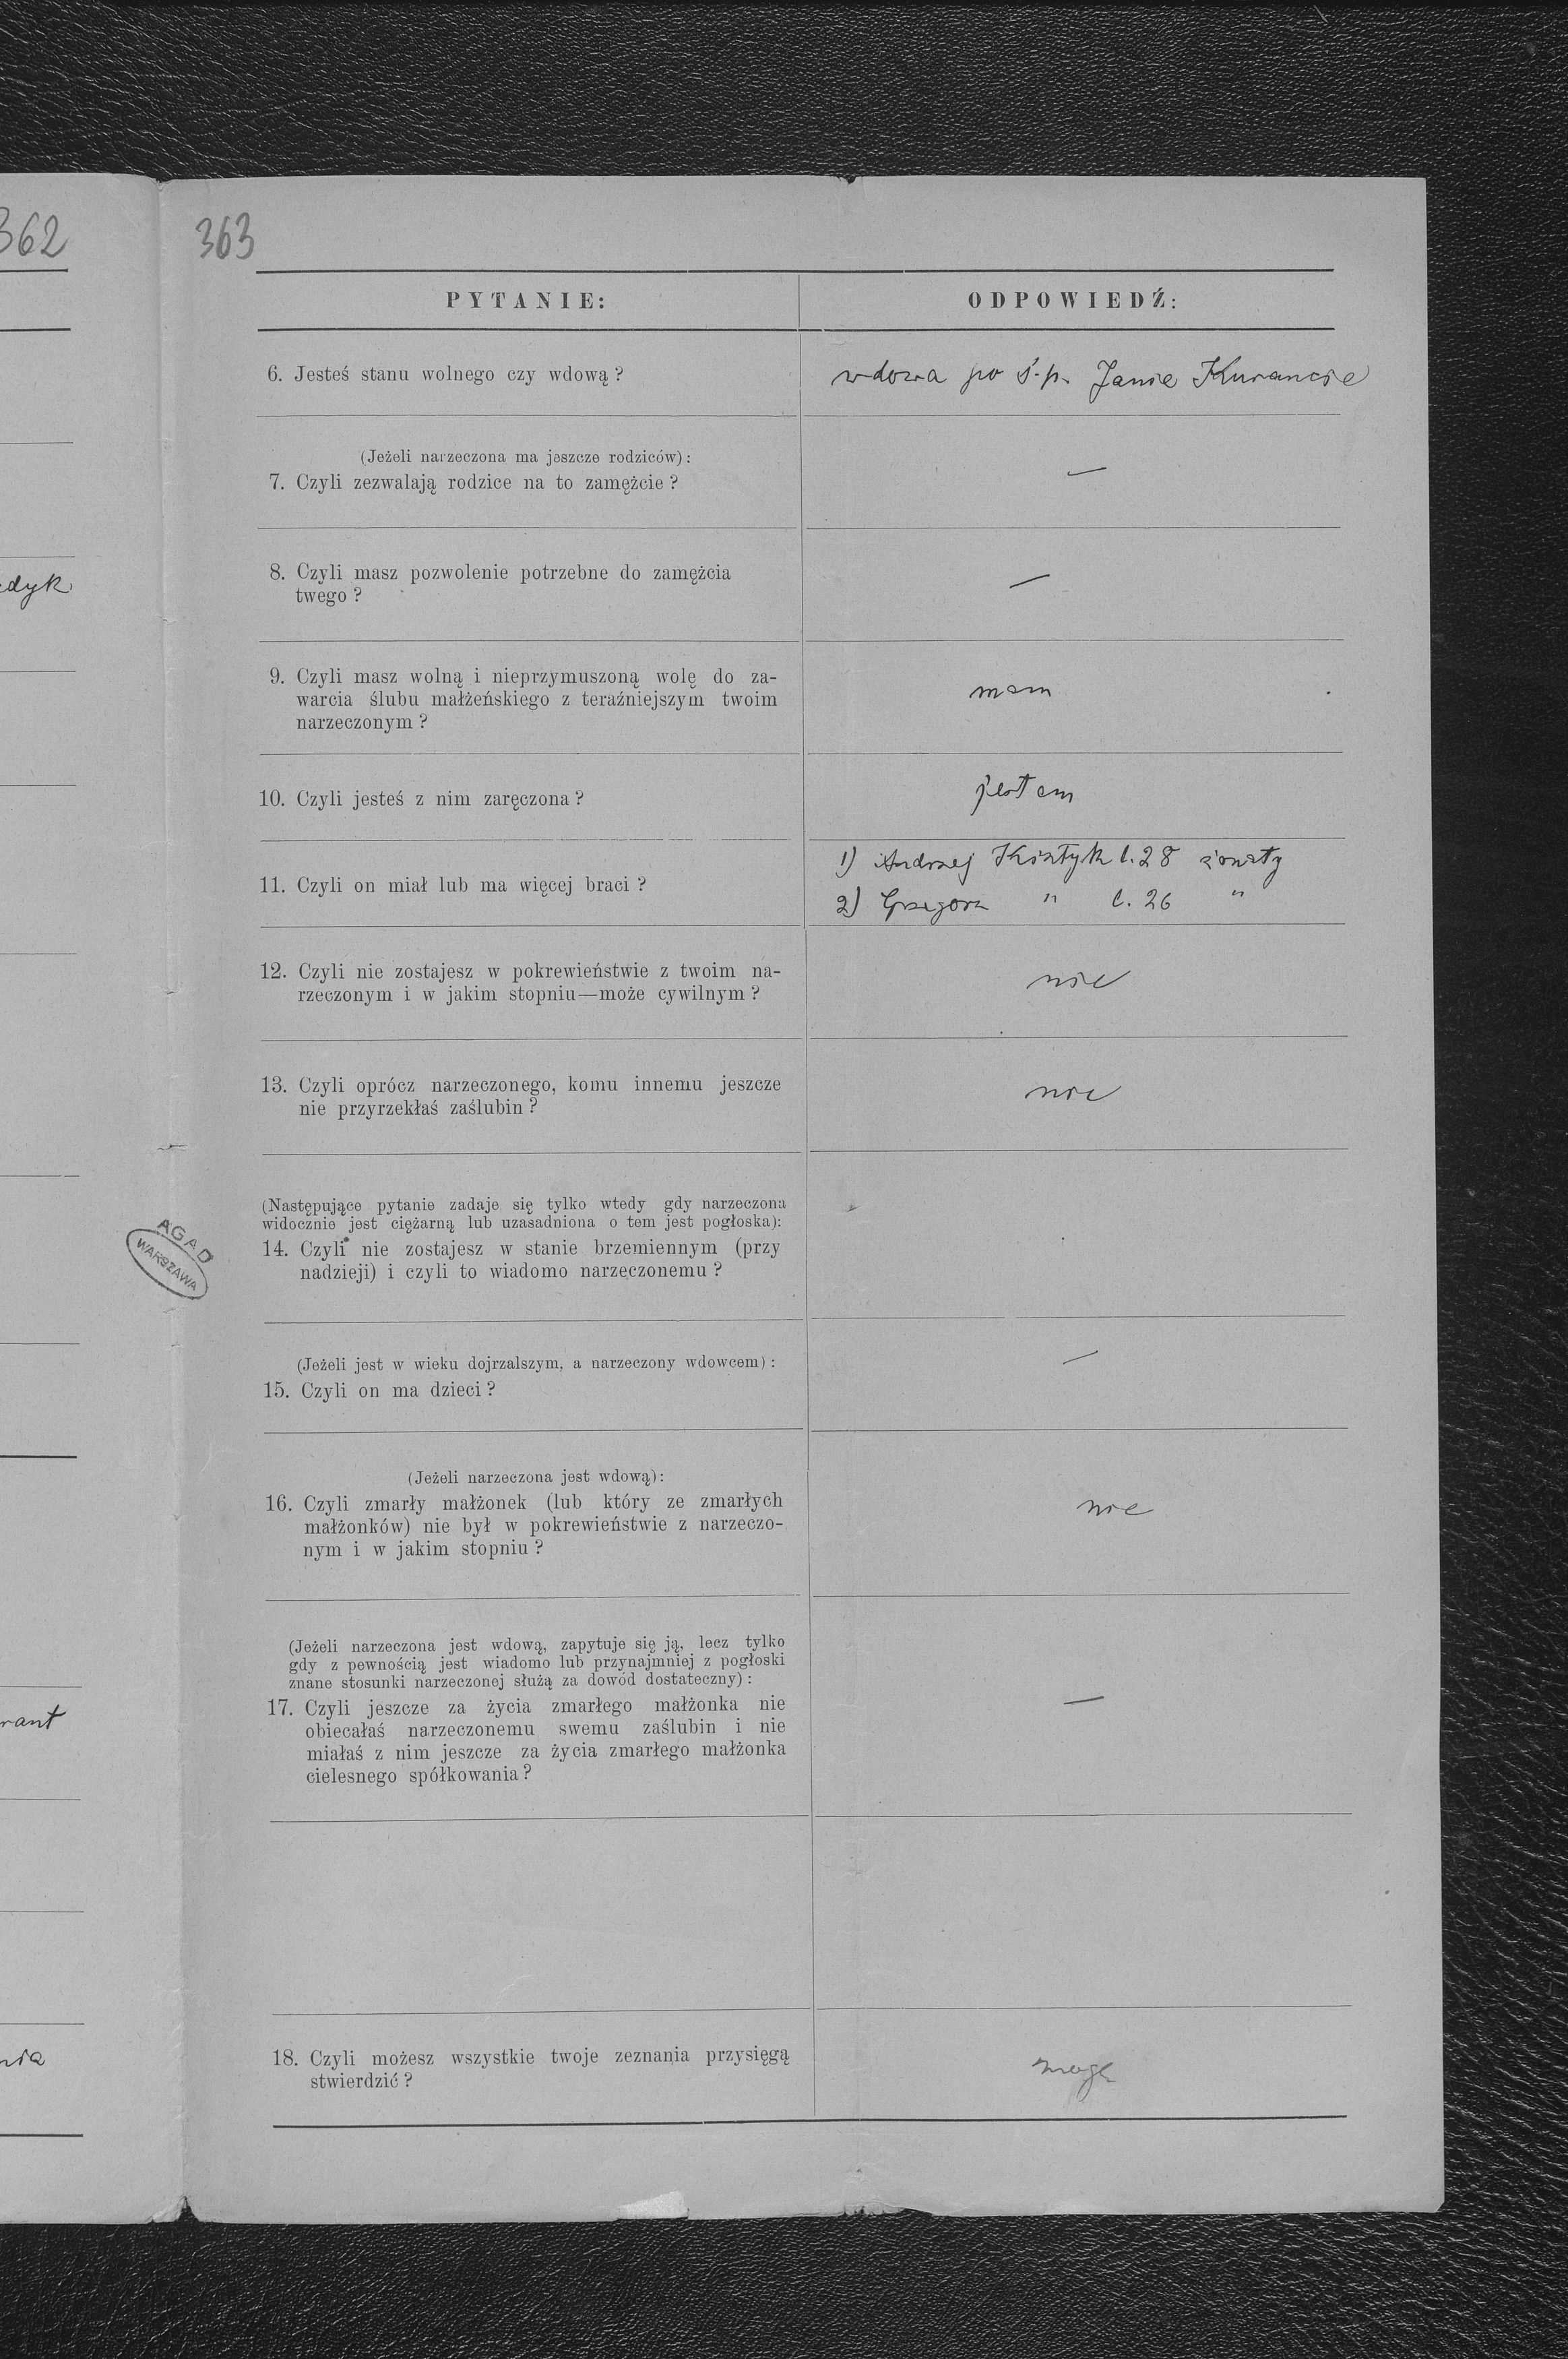 362
363
PYTANIE:
ODPOWIEDŹ:
6. Jesteś stanu wolnego czy wdową?
wdowa po ś.p. Janie Kurancie
(Jeżeli narzeczona ma jeszcze rodziców):
7. Czyli zezwalają rodzice na to zamężcie?
—
8. Czyli masz pozwolenie potrzebne do zamężcia
twego?
—
9. Czyli masz wolną i nieprzymuszoną wolę do za-
warcia ślubu małżeńskiego z teraźniejszym twoim
narzeczonym?
mam
10. Czyli jesteś z nim zaręczona?
jestem
11. Czyli on miał lub ma więcej braci?
1) Andrzej l. 28 żonaty
2) Grzegorz " l. 26 "
12. Czyli nie zostajesz w pokrewieństwie z twoim na-
rzeczonym i w jakim stopniu—może cywilnym?
nie
13. Czyli oprócz narzeczonego, komu innemu jeszcze
nie przyrzekłaś zaślubin?
nie
(Następujące pytanie zadaje się tylko wtedy gdy narzeczona
widocznie jest ciężarną lub uzasadniona o tem jest pogłoska):
14. Czyli nie zostajesz w stanie brzemiennym (przy
nadzieji) i czyli to wiadomo narzeczonemu?
AGAD
WARSZAWA
(Jeżeli jest w wieku dojrzalszym, a narzeczony wdowcem):
15. Czyli on ma dzieci?
—
(Jeżeli narzeczona jest wdową):
16. Czyli zmarły małżonek (lub który ze zmarłych
małżonków) nie był w pokrewieństwie z narzeczo-
nym i w jakim stopniu?
nie
(Jeżeli narzeczona jest wdową, zapytuje się ją, lecz tylko
gdy z pewnością jest wiadomo lub przynajmniej z pogłoski
znane stosunki narzeczonej służą za dowód dostateczny):
17. Czyli jeszcze za życia zmarłego małżonka nie
obiecałaś narzeczonemu swemu zaślubin i nie
miałaś z nim jeszcze za życia zmarłego małżonka
cielesnego spółkowania?
—
18. Czyli możesz wszystkie twoje zeznania przysięgą
stwierdzić?
mogę